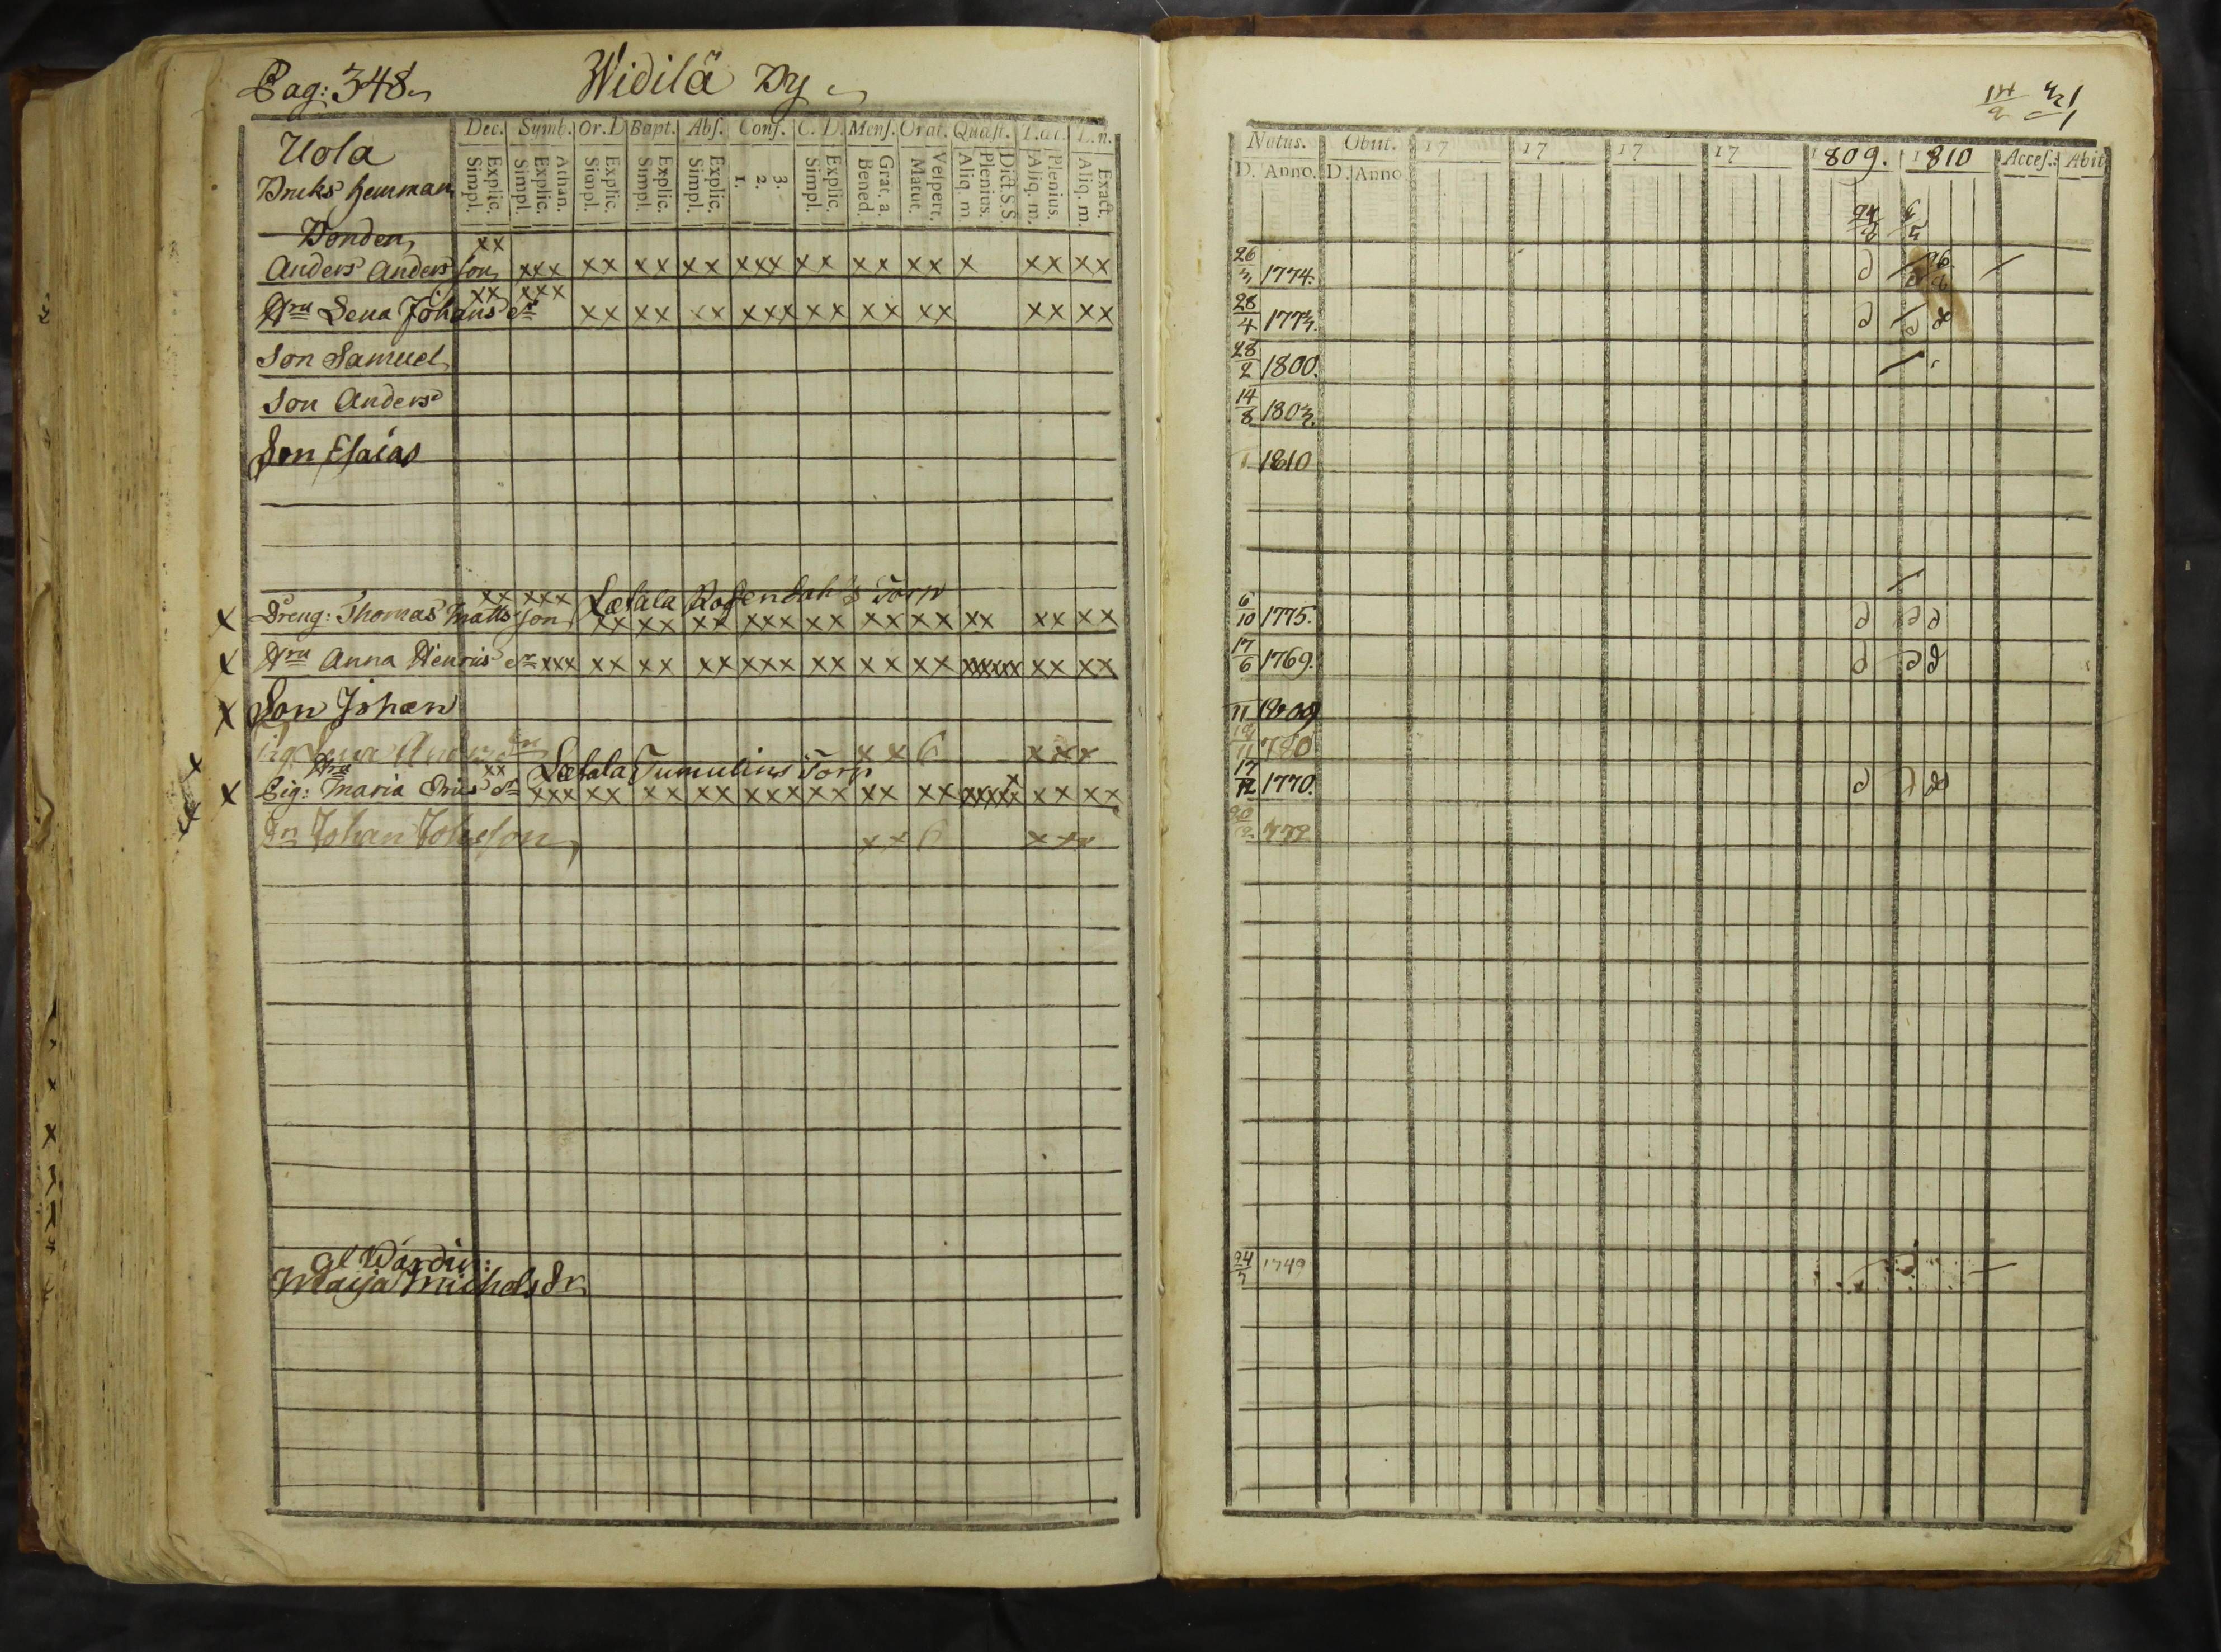 Pag: 348. Widilä By
Dec. Symb. Or. D Bapt. Abs. Conf. C. D. Mens. Orat. Quæst. L.n.
Explic. Simpl. Athan. Explic. Simpl. Explic. Simpl. Explic. Simpl. Explic. Simpl. 3. 2. 1. Explic. Simpl. Grat. a. Bened. Vespert. Matut. Dict. S.S. Plenius. Aliq. m. Plenius. Aliq. m. Exact. Aliq. m.
Uola
Bruks Hemman
Bonden xx
Anders Andersson xxx xx xx xx xxx xx xx xx x xx xx
xx xxx
Hru Lena Johans dr xx xx xx xxx xx xx xx xx xx
Son Samuel
Son Anders
Son Esaias
xx xxx Letala Rosendahls Torp
x Dreng: Thomas Mattsson xx xx xx xxx xx xx xx xx xx xx
x Hru Anna Henrics dr xxx xx xx xx xxx xx xx xx xxxxx xx xx
x Son Johan
x Pig. Lena x x 6 x x x
Hru xx Letala Tumulins Torp
x Pig: Maria Erics dr xxx xx xx xx xxx xx xx xx xxxxx xx xx
x Dr Johan Johsson x x 6 x x x
Maija Michels Dr
14/2
Natus. Obiit. 17 17 17 17 1809. 1810 Acces. Abit
D. Anno. D. Anno
26/3 1774.
28/4 1773.
28/2 1800.
14/8 1803.
1810
6/10 1775.
17/6 1769.
11 1809
780
17/12 1770.
772
24/3 1749